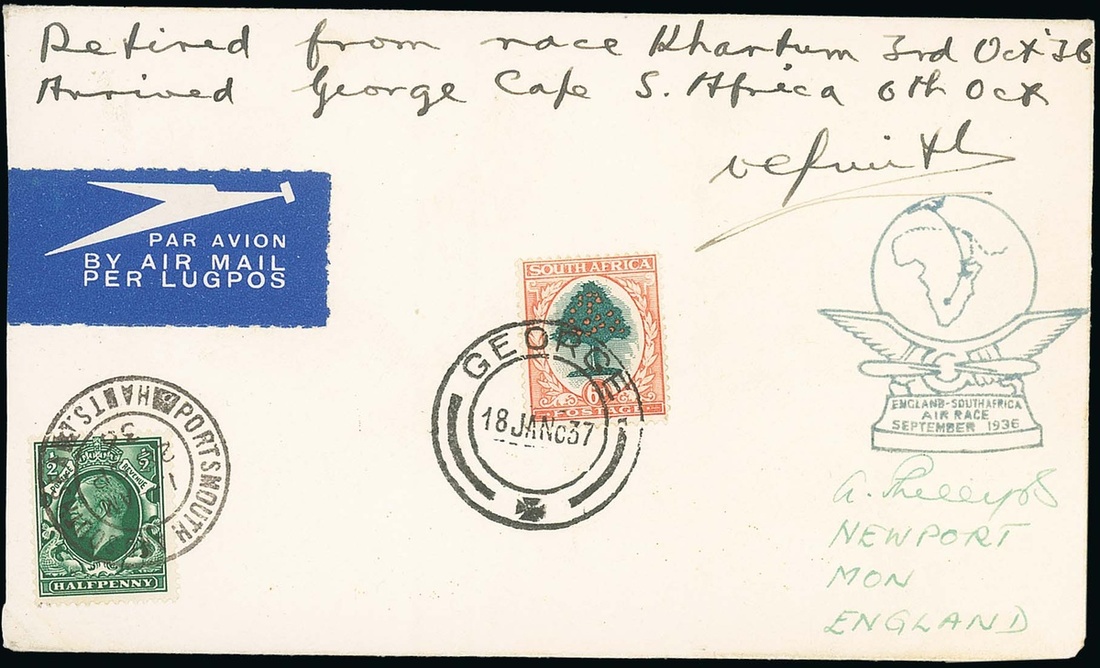 Retired from race Khartum 3rd Oct 36
Arrived George Cape S. Africa 6th Oct
PAR AVION
BY AIR MAIL
PER LUGPOS
SOUTH AFRICA
6
POSTAGE
GEORGE
18 JAN 37
ENGLAND-SOUTH AFRICA
AIR RACE
SEPTEMBER 1936
PORTSMOUTH HANTS
1/2
POSTAGE REVENUE 1/2
HALFPENNY
A.
NEWPORT
MON
ENGLAND